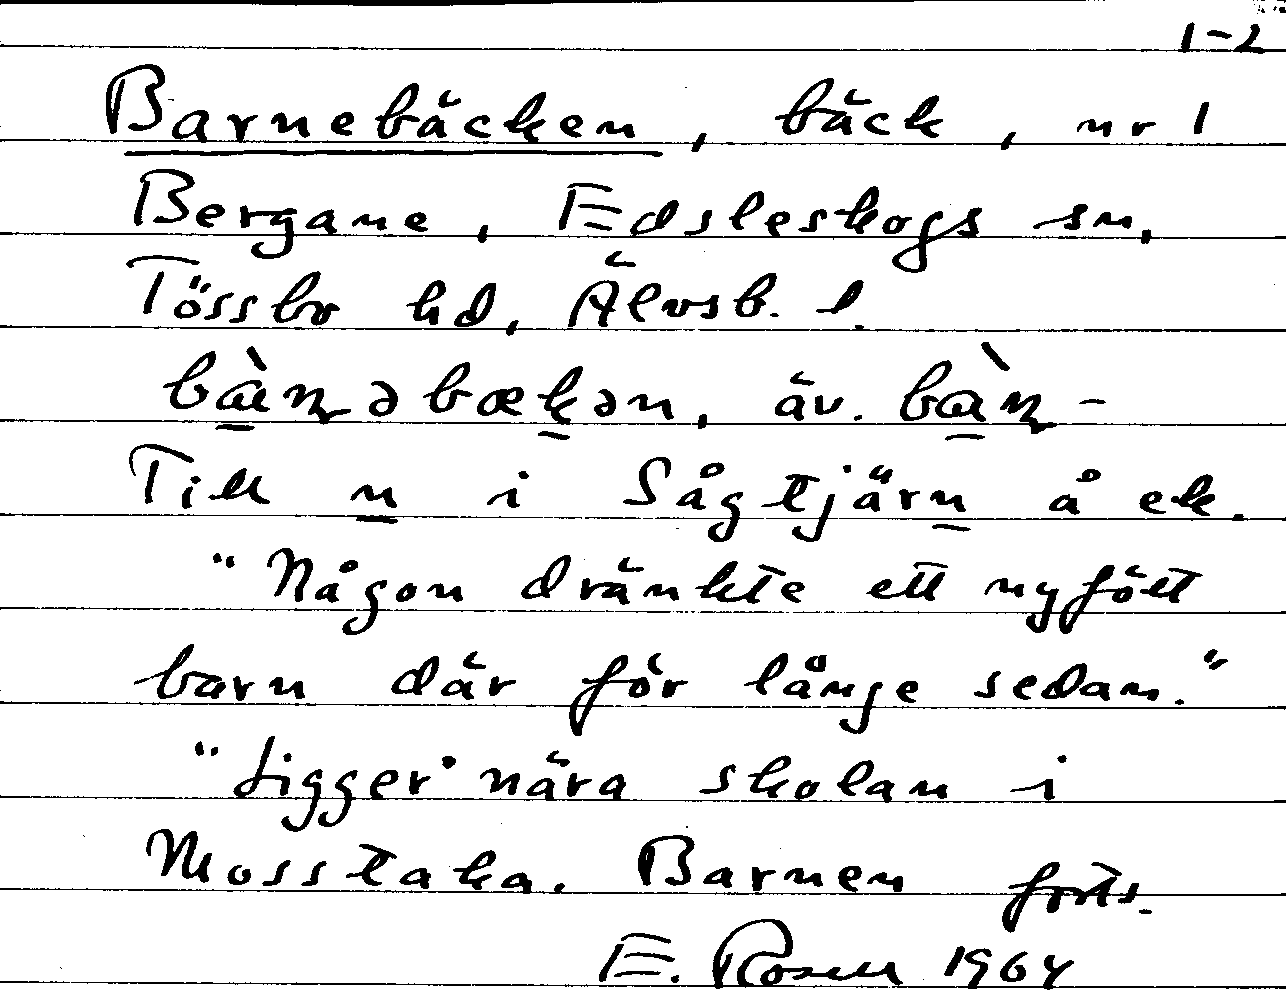 1-2
Barnebäcken, bäck, nr 1
Bergane, Edsleskogs sn,
Tössbo hd, Älvsb. l.
bàɳəbækən, äv. bàɳ-
Till n i Sågtjärn å ek.
"Någon dränkte ett nyfött
barn där för länge sedan."
"Ligger nära skolan i
Mosstaka. Barnen forts.
E. Rosell 1964